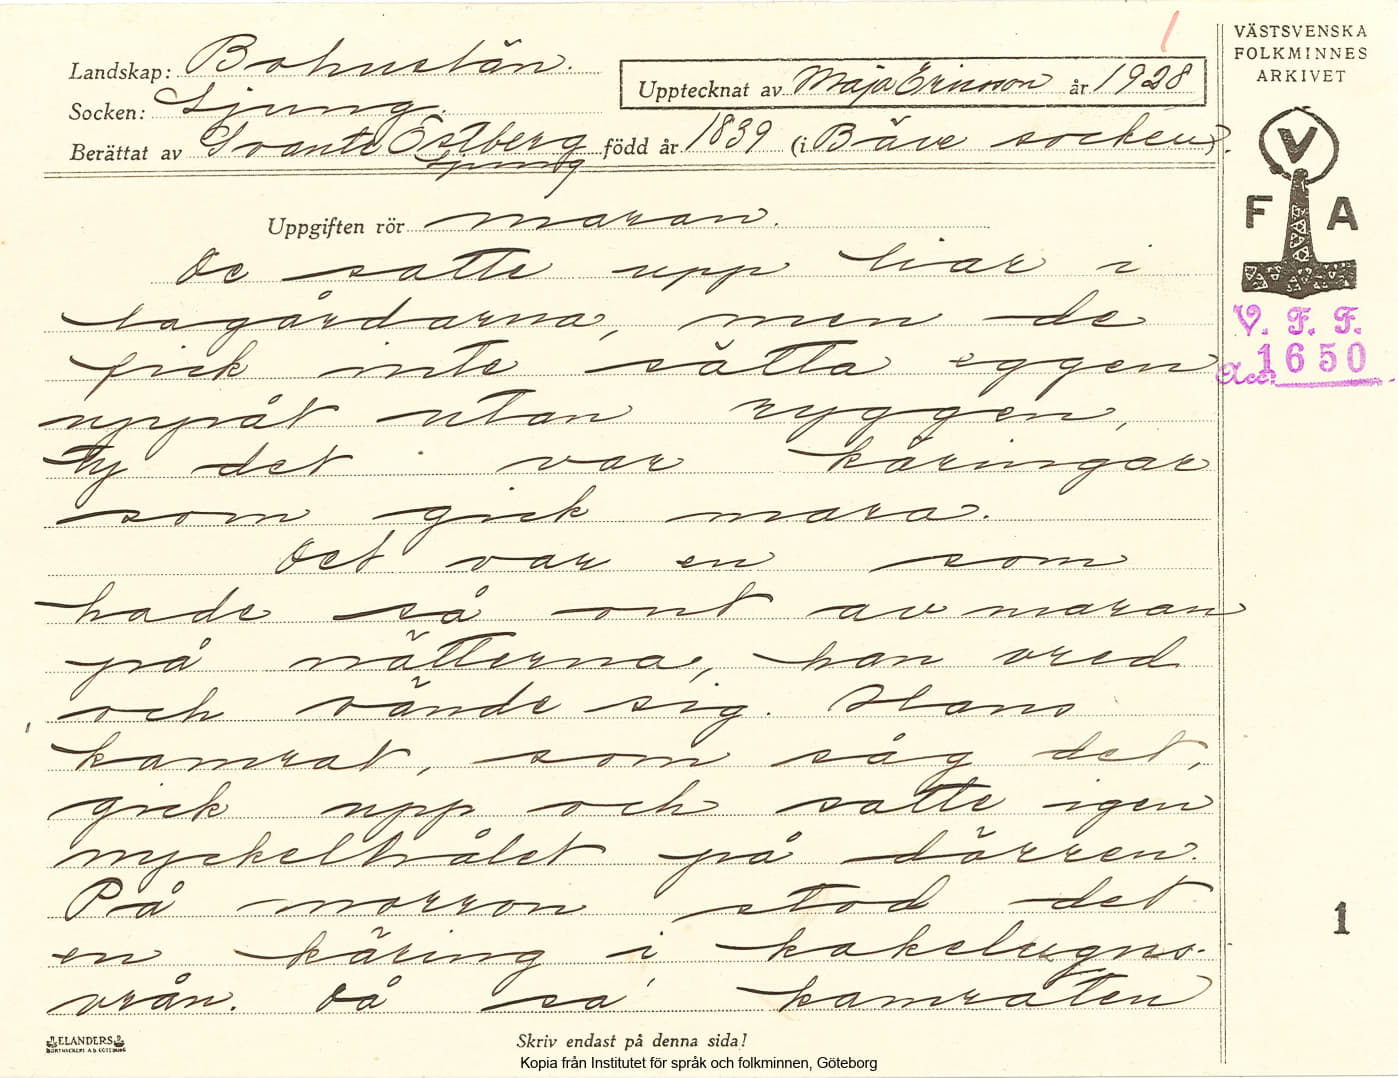 1
VÄSTSVENSKA
FOLKMINNES
ARKIVET
Landskap: Bohuslän.
Upptecknat av Maja Ericsson år 1928
Socken: Ljung.
Berättat av Svante Östberg född år 1839 (i Bäve socken).
Ljung
Uppgiften rör maran.
V
F A
De satte upp liar i
lagårdarna, men de
fick inte sätta eggen
uppåt utan ryggen,
ty det var käringar
som gick mara.
V. F. F.
Acc: 1650
Det var en som
hade så ont av maran
på nätterna, han vred
och vände sig. Hans
kamrat, som såg det,
gick upp och satte igen
nyckelhålet på dörren.
På morron stod det
en käring i kakelugns-
vrån. Då sa' kamraten
1
ELANDERS
BOKTRYCKERI A.B. GÖTEBORG
Skriv endast på denna sida!
Kopia från Institutet för språk och folkminnen, Göteborg